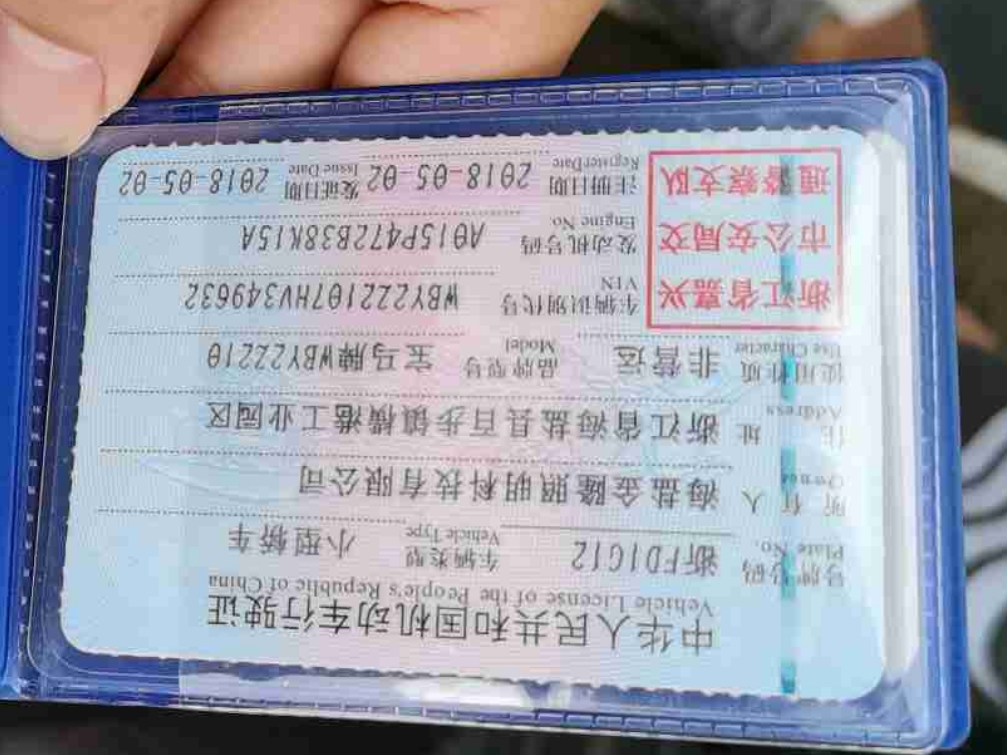 中华人民共和国机动车行驶证
Vehicle License of the People's Republic of China
号牌号码 车辆类型 小型轿车
Plate No. Vehicle Type
所有人 海盐金隆照明科技有限公司
Owner
住址 浙江省海盐县百步镇横港工业园区
Address
使用性质 非营运 品牌型号 宝马牌WBY2Z210
Use Character Model
浙江省嘉兴
市公安局交
通警察支队
车辆识别代号 WBY2Z2107HV349632
VIN
发动机号码 A015P472B38K15A
Engine No.
注册日期 2018-05-02 发证日期 2018-05-02
Register Date Issue Date